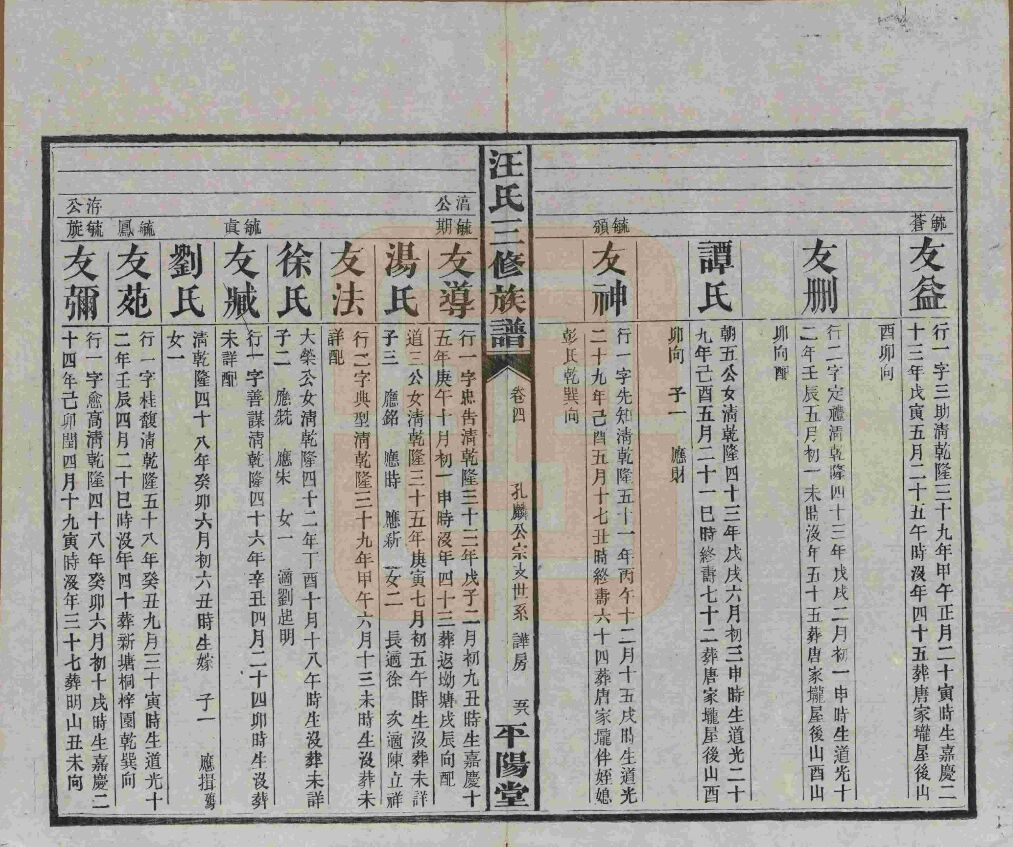 毓蒼
友益
行一字三助清乾隆三十九年甲午正月二十寅時生嘉慶二
十三年戊寅五月二十五午時沒年四十五葬唐家壠屋後山
酉卯向
友刪
行二字定禮清乾隆四十三年戊戌二月初一申時生道光十
二年壬辰五月初一未時沒年五十五葬唐家壠屋後山酉山
卯向配
譚氏
朝五公女清乾隆四十三年戊戌六月初三申時生道光二十
九年己酉五月二十一巳時終壽七十二葬唐家壠屋後山酉
卯向 子一 應財
毓頟
友神
行一字先知清乾隆五十一年丙午十二月十五戌時生道光
二十九年己酉五月十七丑時終壽六十四葬唐家壠伴姪媳
彭氏乾巽向
汪氏三修族譜
卷四
孔麟公宗支世系 譁房
平陽堂
公
毓期
友導
行一字忠告清乾隆三十三年戊子二月初九丑時生嘉慶十
五年庚午十月初一申時沒年四十三葬返坳塘戌辰向配
湯氏
道三公女清乾隆三十五年庚寅七月初五午時生沒葬未詳
子三 應銘 應時 應薪 女二 長適徐 次適陳立祥
友法
行二字典型清乾隆三十九年甲午六月十三未時生沒葬未
詳配
徐氏
大榮公女清乾隆四十二年丁酉十月十八午時生沒葬未詳
子二 應兟 應宋 女一 適劉起明
毓眞
友臧
行一字善謀清乾隆四十六年辛丑四月二十四卯時生沒葬
未詳配
劉氏
清乾隆四十八年癸卯六月初六丑時生嫁 子一 應揖
女一
毓鳳
友苑
行一字桂馥清乾隆五十八年癸丑九月三十寅時生道光十
二年壬辰四月二十巳時沒年四十葬新塘桐梓園乾巽向
公
毓旋
友彌
行一字愈高清乾隆四十八年癸卯六月初十戌時生嘉慶二
十四年己卯閏四月十九寅時沒年三十七葬明山丑未向